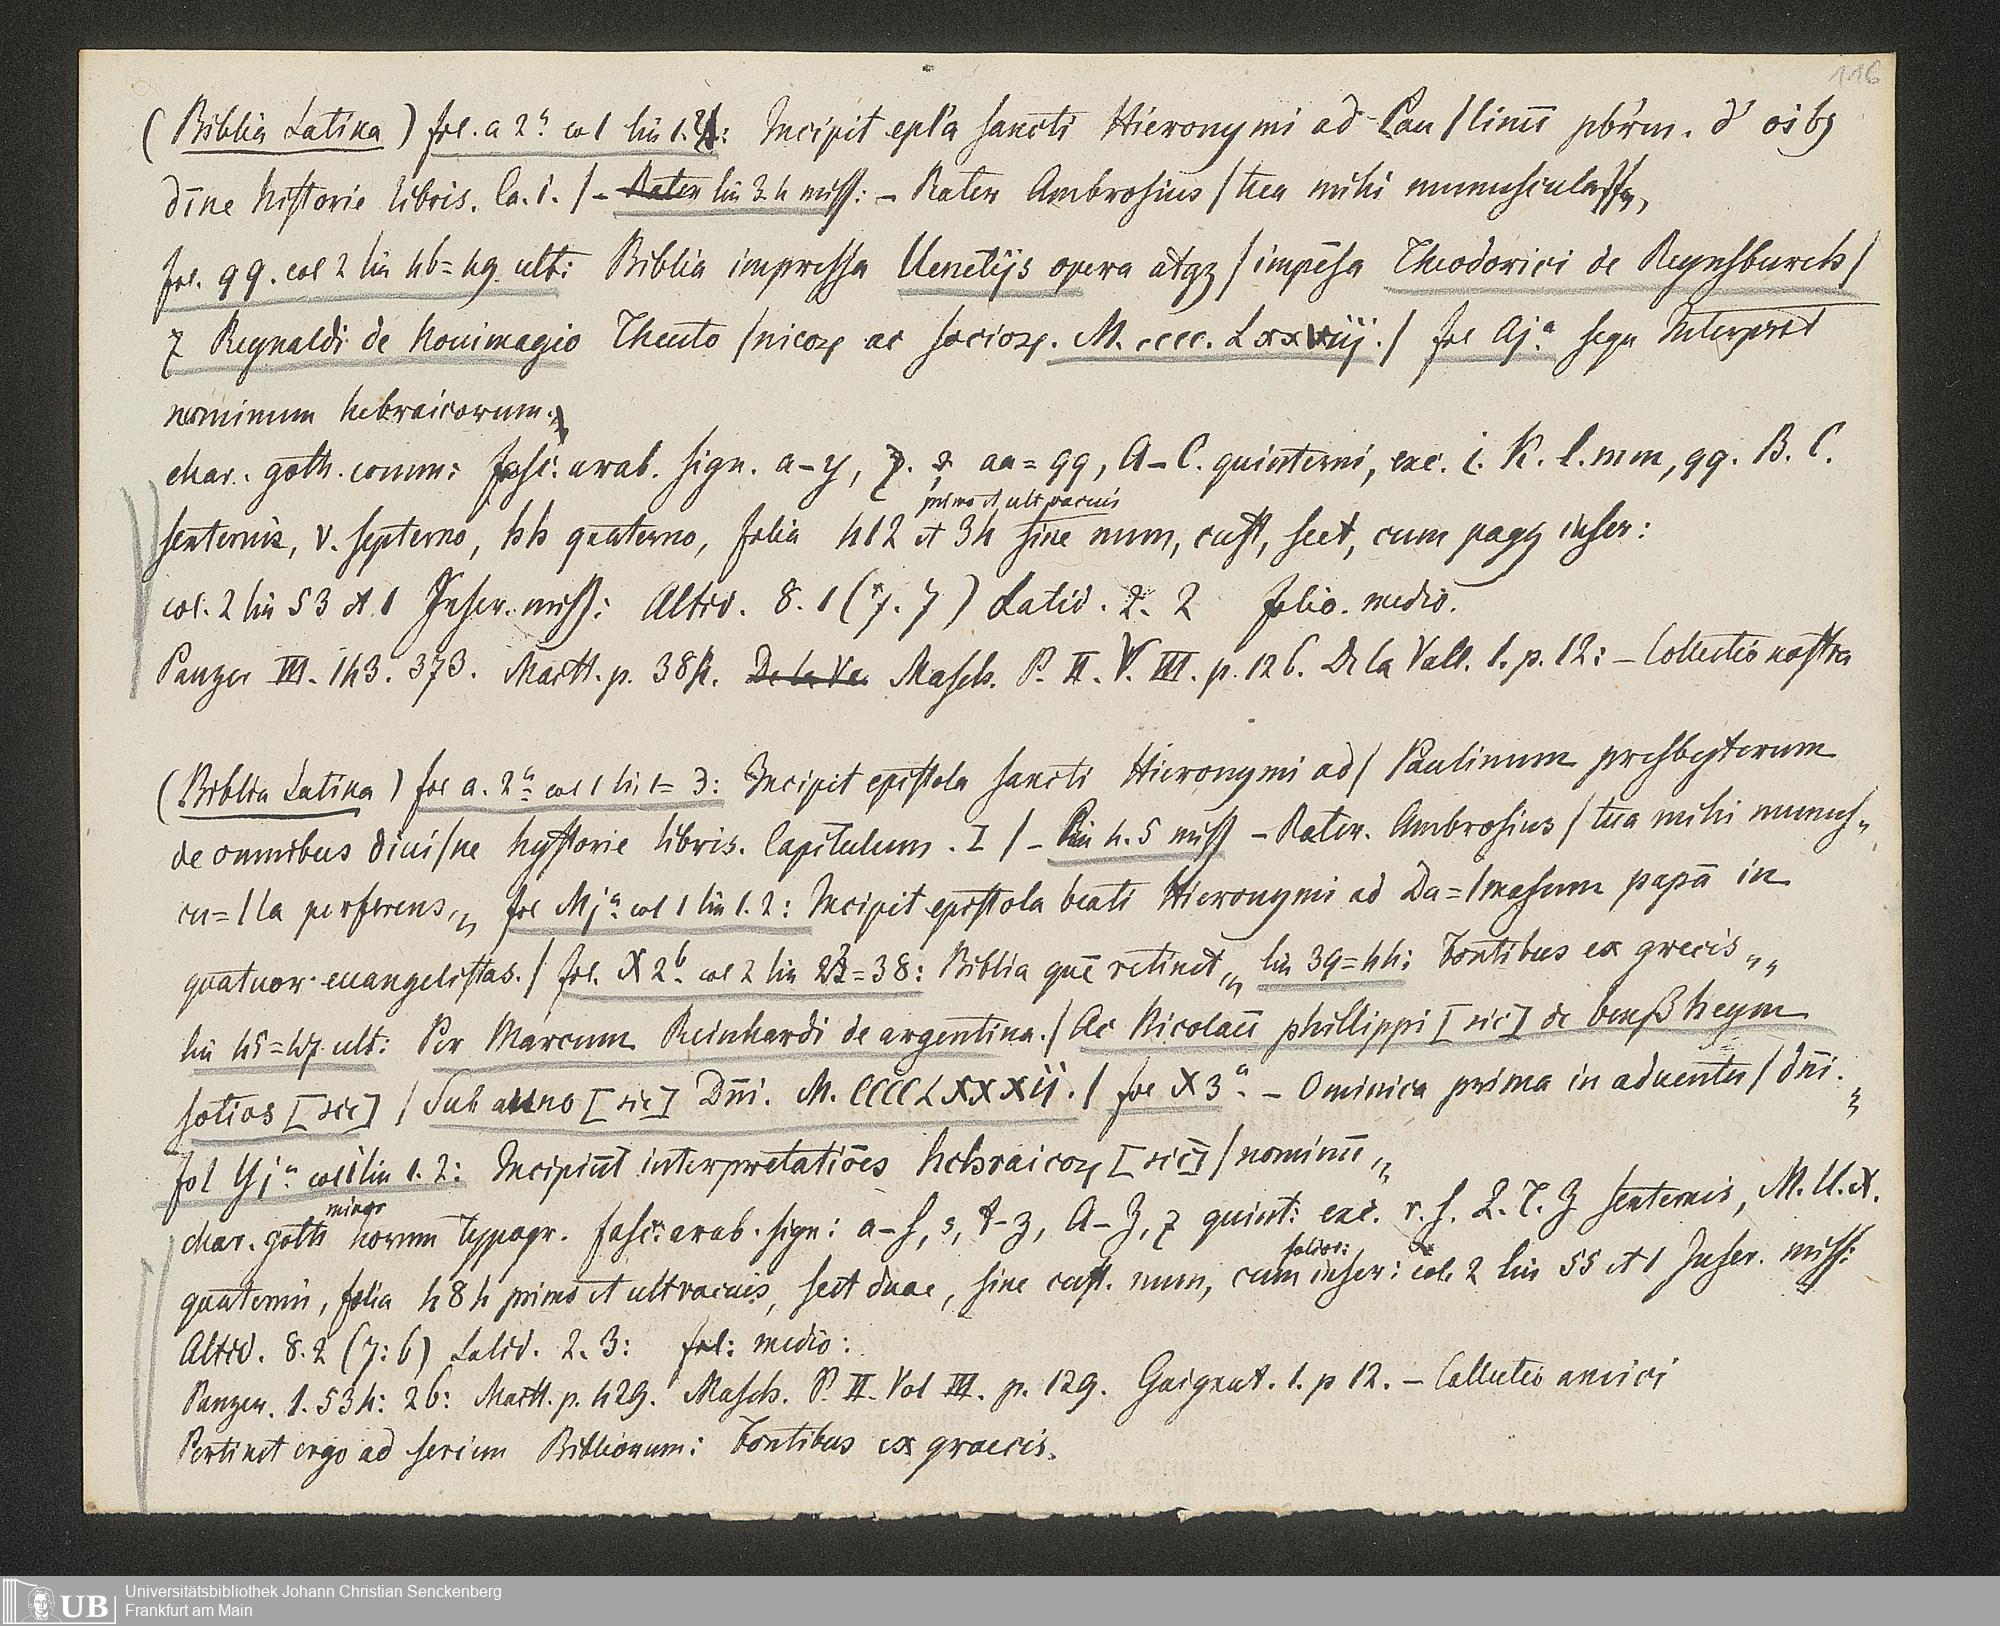 116
(Biblia Latina) fol. a 2ª col 1 lin 1.2: Incipit epl'a sancti Hieronymi ad Pau/linū pb'rm. d' oib9
dīne historie libris. Ca. i. / – Rater lin 3.4 miss: – Rater Ambrosius / tua mihi munuscula
fol. qq. col 2 lin 46=49 ult: Biblia impressa Uenetijs opera atqz / impēsa Theodorici de Reynsburch /
⁊ Reynaldi de Nouimagio Theuto /nicoꝝ ac socioꝝ. M. cccc. Lxxviij. / fol Aj.ª sequ Interpret
nominum hebraicorum.
char. goth. comm: fasc: arab. sign. a–y, z. ⁊ aa=qq, A–C. quinterni, exc. i. K. l. mm, qq. B. C.
primo et ult vacuis
senternis, v. septerno, hh quaterno, folia 412 et 34 sine num, cust, sect, cum pagg inscr:
col. 2 lin 53 et 1 Inscr. miss: Altid. 8. 1 (7. 7) Latid. 2. 2 folio. medio.
Panzer III. 143. 373. Maitt. p. 384. De la Va. Masch. P. II. V. III. p. 126. De la Vall. 1. p. 12: – Collectio nostra
(Biblia Latina) fol a. 2ª col 1 li 1=3: Incipit epistola sancti Hieronymi ad / Paulinum presbyterum
de omnibus diui/ne hystorie libris. Capitulum. I / – lin 4. 5 miss – Rater. Ambrosius / tua mihi munus„
cu=/la perferens„ fol Mjª col 1 lin 1. 2: Incipit epistola beati Hieronymi ad Da=/masum papā in
quatuor euangelistas. / fol. X 2b col 2 lin 23=38: Biblia quē retinet„ lin 39=44: Fontibus ex grecis„„
lin 45=47 ult: Per Marcum Reinhardi de argentina. / Ac Nicolaū phillippi [sic] de benßheym
sotios [sic] / Sub anno [sic] Dn̄i. M. CCCC LXXXij. / fol X 3ª. – Ominica prima in aduentu / dn̄i. „
fol Yjª col 1 lin 1. 2: Incipiūt interpretatiōes hebraicoꝝ [sic] / nominū„
minor
char. goth horum typogr. fasc: arab. sign: a–s, s, t–z, A–Z, ⁊ quint: exc. r. s. Q. T. Z senternis, M. U. X.
folior:
quaternis, folia 484 primo et ult vacuis, sect duae, sine cust. num, cum inscr: col. 2 lin 55 et 1 Inscr. miss:
Altid. 8. 2 (7:6) Latid. 2. 3: fol: medio:
Panzer. 1. 534: 26: Maitt. p. 429. Masch. P. II. Vol III. p. 129. Gaignat. 1. p 12. – Collectio amici
Pertinet ergo ad seriem Bibliorum: Fontibus ex graecis.
UB Universitätsbibliothek Johann Christian Senckenberg
Frankfurt am Main